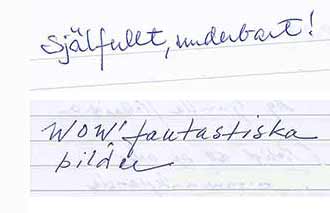 Själfullt, underbart!
WOW! fantastiska
bilder